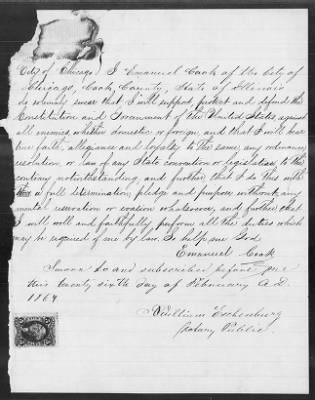 City of Chicago. I Emanuel Cook of the City of
Chicago, Cook County, State of Illinois
do solemnly swear that I will support, protect and defend the
Constitution and Government of the United States, against
all enemies, whether domestic or foreign, and that I will bear
true faith, allegiance and loyalty to the same, any ordinance,
resolution, or law of any State convention or legislature to the
contrary notwithstanding, and further, that I do this with
a full determination, pledge and purpose, without any
mental reservation or evasion whatsoever, and further that
I will well and faithfully perform all the duties which
may be required of me by law. So help me God
Emanuel Cook
Sworn to and subscribed before me
this twenty sixth day of February A.D.
186
William Eschenburg
Notary Public